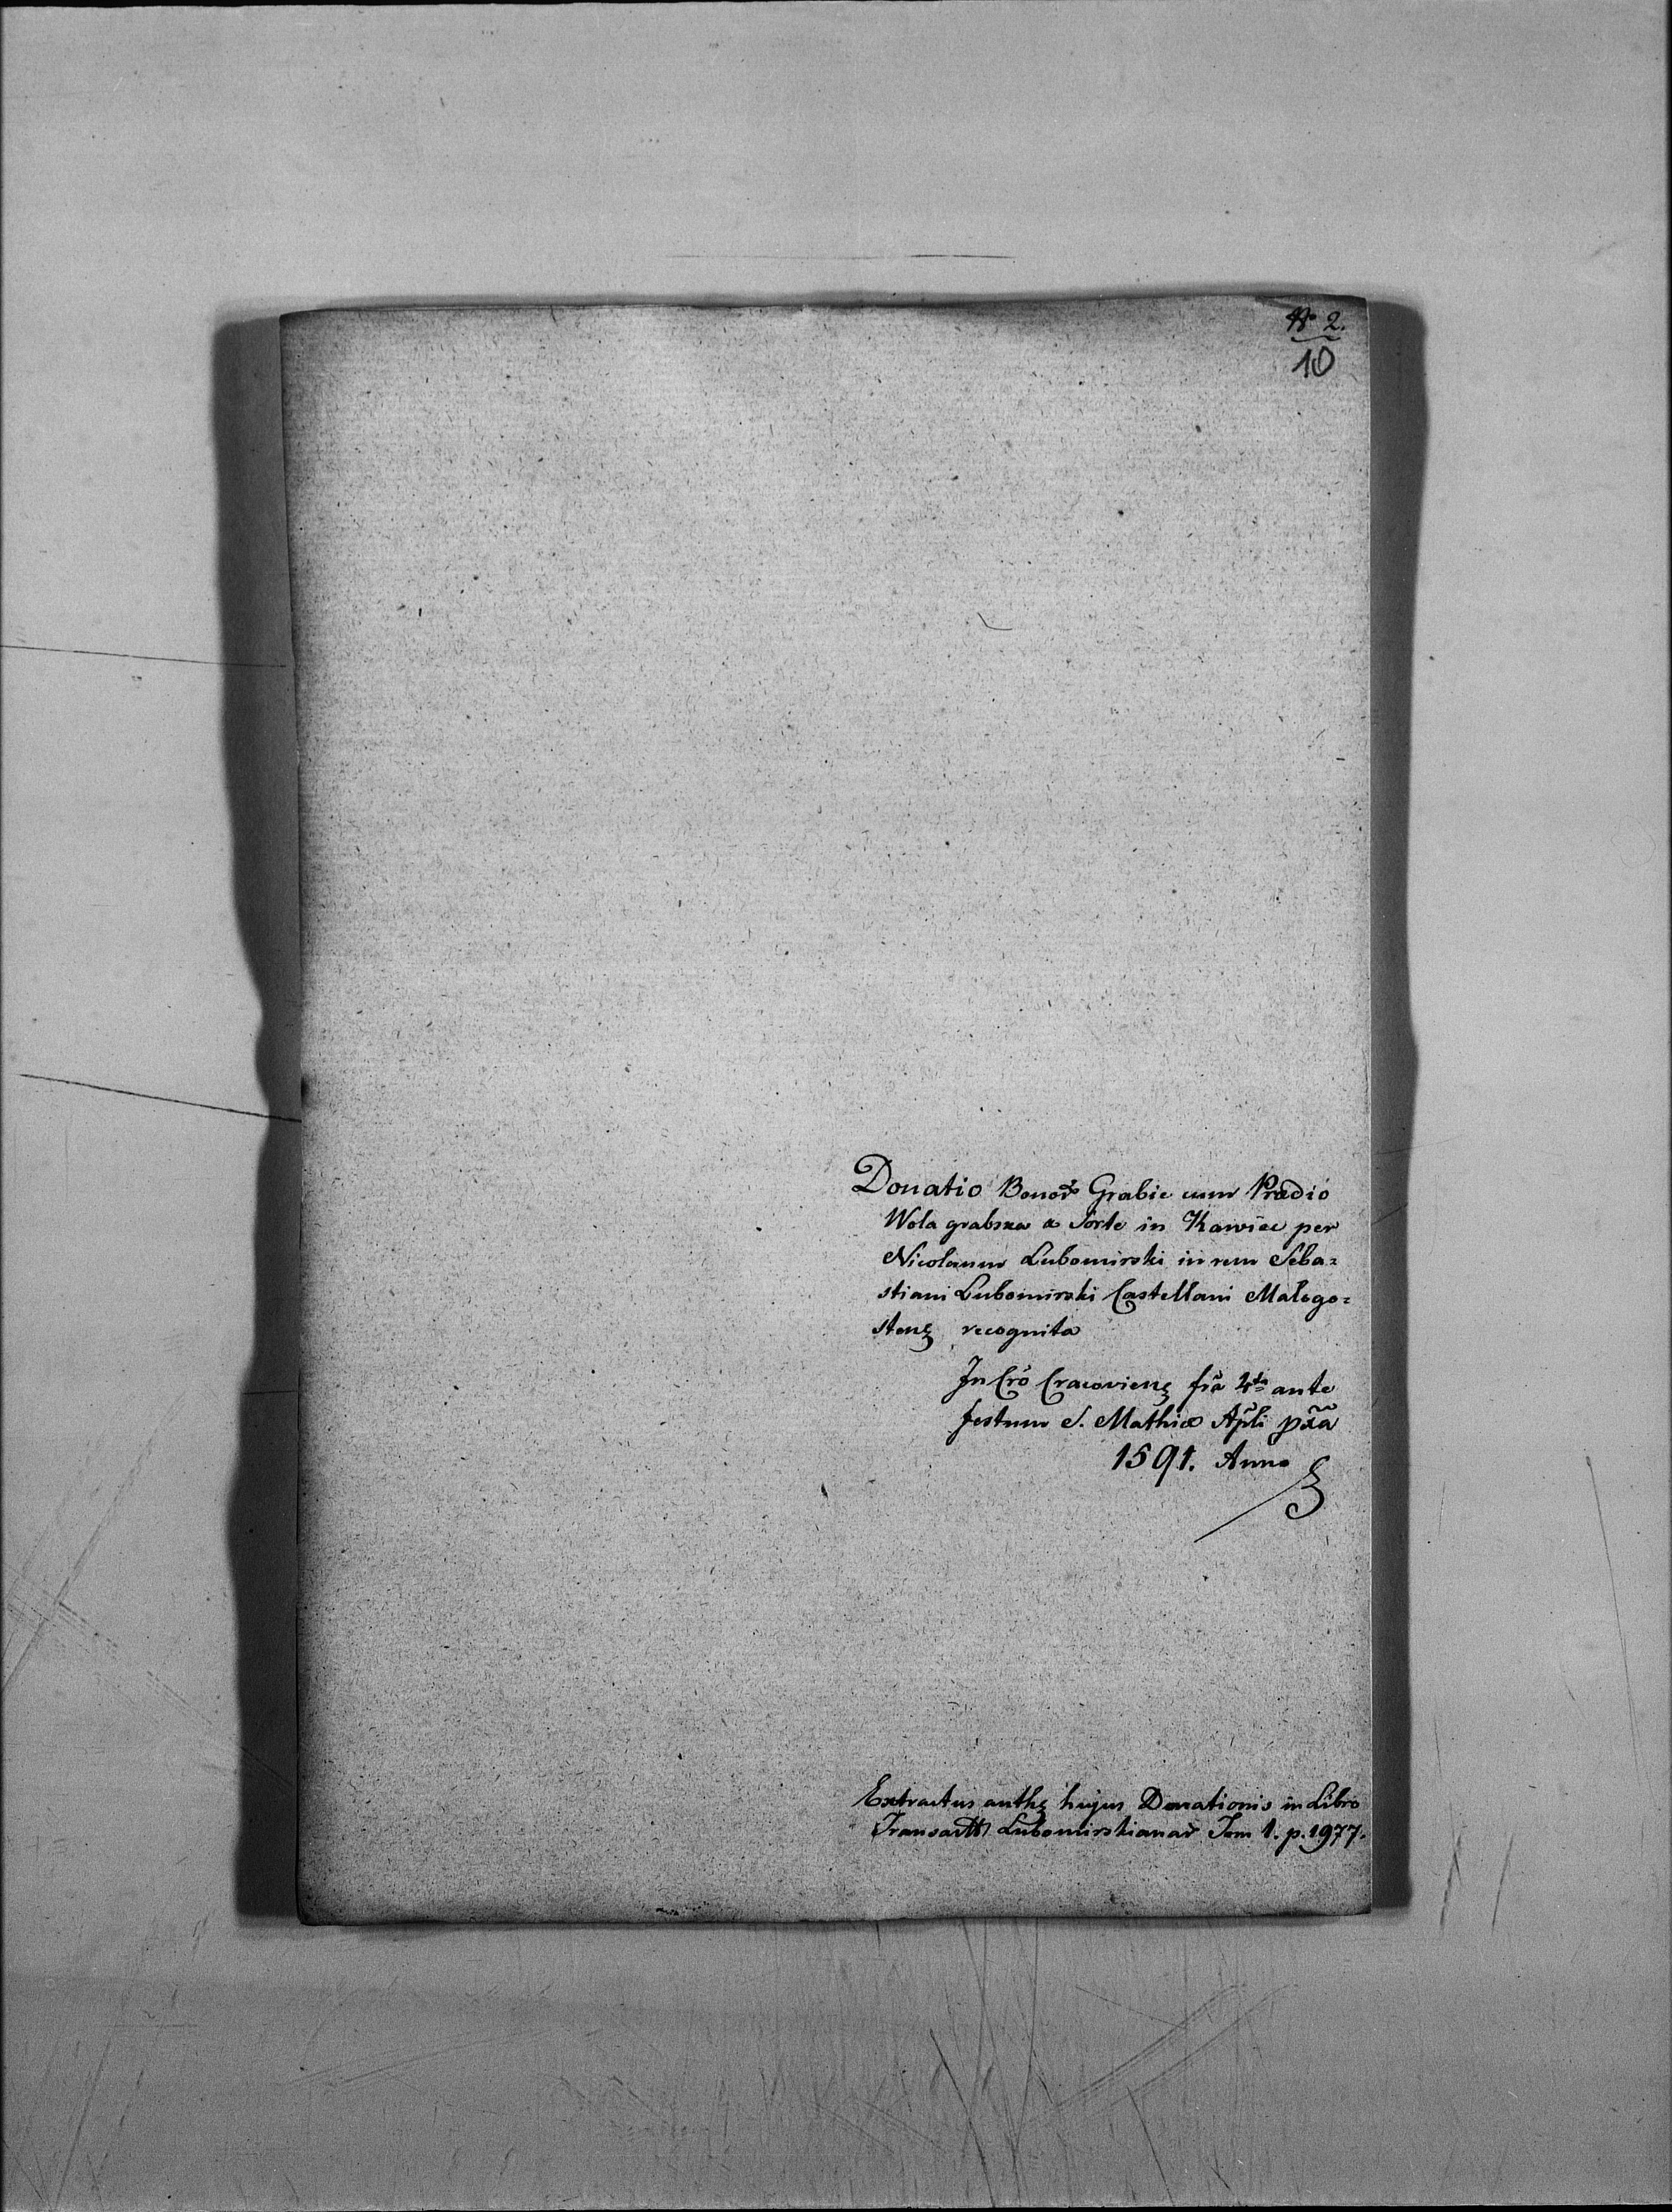 No 2.
10
Donatio Bonor Grabie cum Prædio
Wola grabska & Sorte in Kawiec per
Nicolaum Lubomirski in rem Seba=
stiani Lubomirski Castellani Malogo=
stenꝫ recognita
In Crō Cracovienꝫ fiā 4ta ante
festum S. Mathiæ Apli pxā
1591. Anno
Extractus authꝫ hujus Donationis in Libro
Lubomirskianar Tom 1. p. 1977.